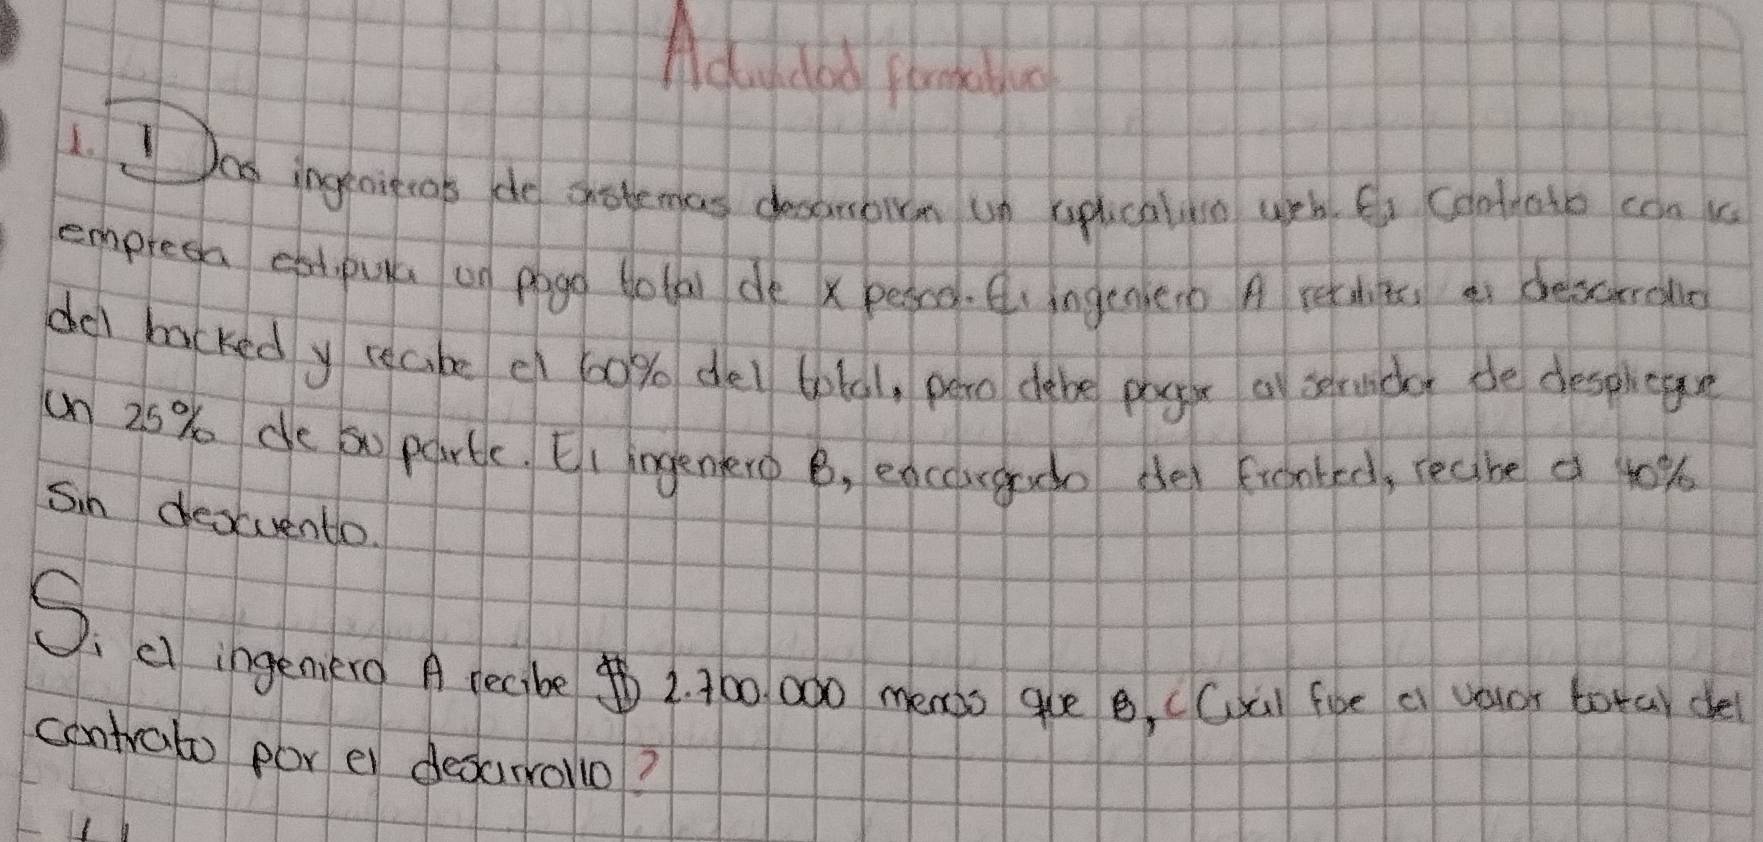 Actividad formativa
1. 1 Dos ingenieros de sistemas desarrollan un aplicativo web. El contrato con la
empresa estipula un pago total de x pesco. El ingeniero A realiza el desarrollo
del backed y recibe el 60% del total, pero debe pagar al servidor de despliegue
un 25% de su parte. El ingeniero B, encargado del fronted, recibe el 40%
Sin descuento.
Si el ingeniero A recibe $ 2.700.000 menos que B, ¿Cuál fue el valor total del
contrato por el desarrollo?